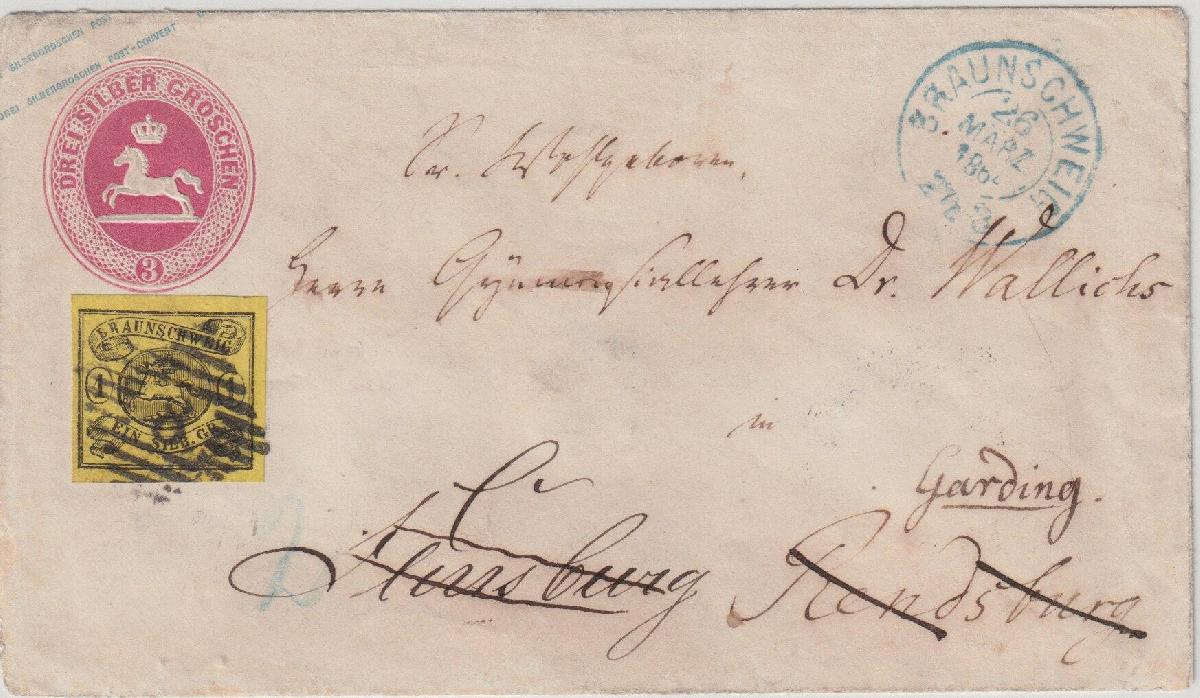 SILBERGROSCHEN POST
DREI SILBERGROSCHEN POST-COUVERT
DREI SILBER GROSCHEN
3
BRAUNSCHWEIG
26
MÄRZ
BRAUNSCHWEIG
1 1
EIN SILB. GR.
8
Sr. Wohlgeboren,
Herrn Gymnasiallehrer Dr. Wallichs
in
Garding.
Flensburg Rendsburg
2